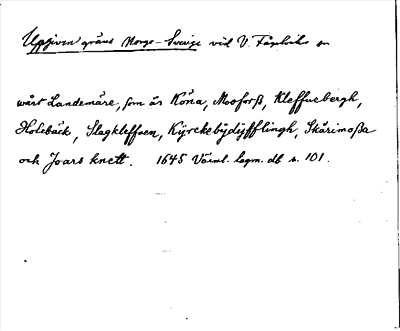 Uppgiven gräns Norge-Sverige vid V. Fågelviks sn
wårt Landemäre, som är Köna, Mooforß, Kleffnebergh,
Holebäck, Slagkleffven, Kÿrckebÿdÿfflingh, Skårimoßa
och Joars knett. 1645 Värml. lagm. db s. 101.